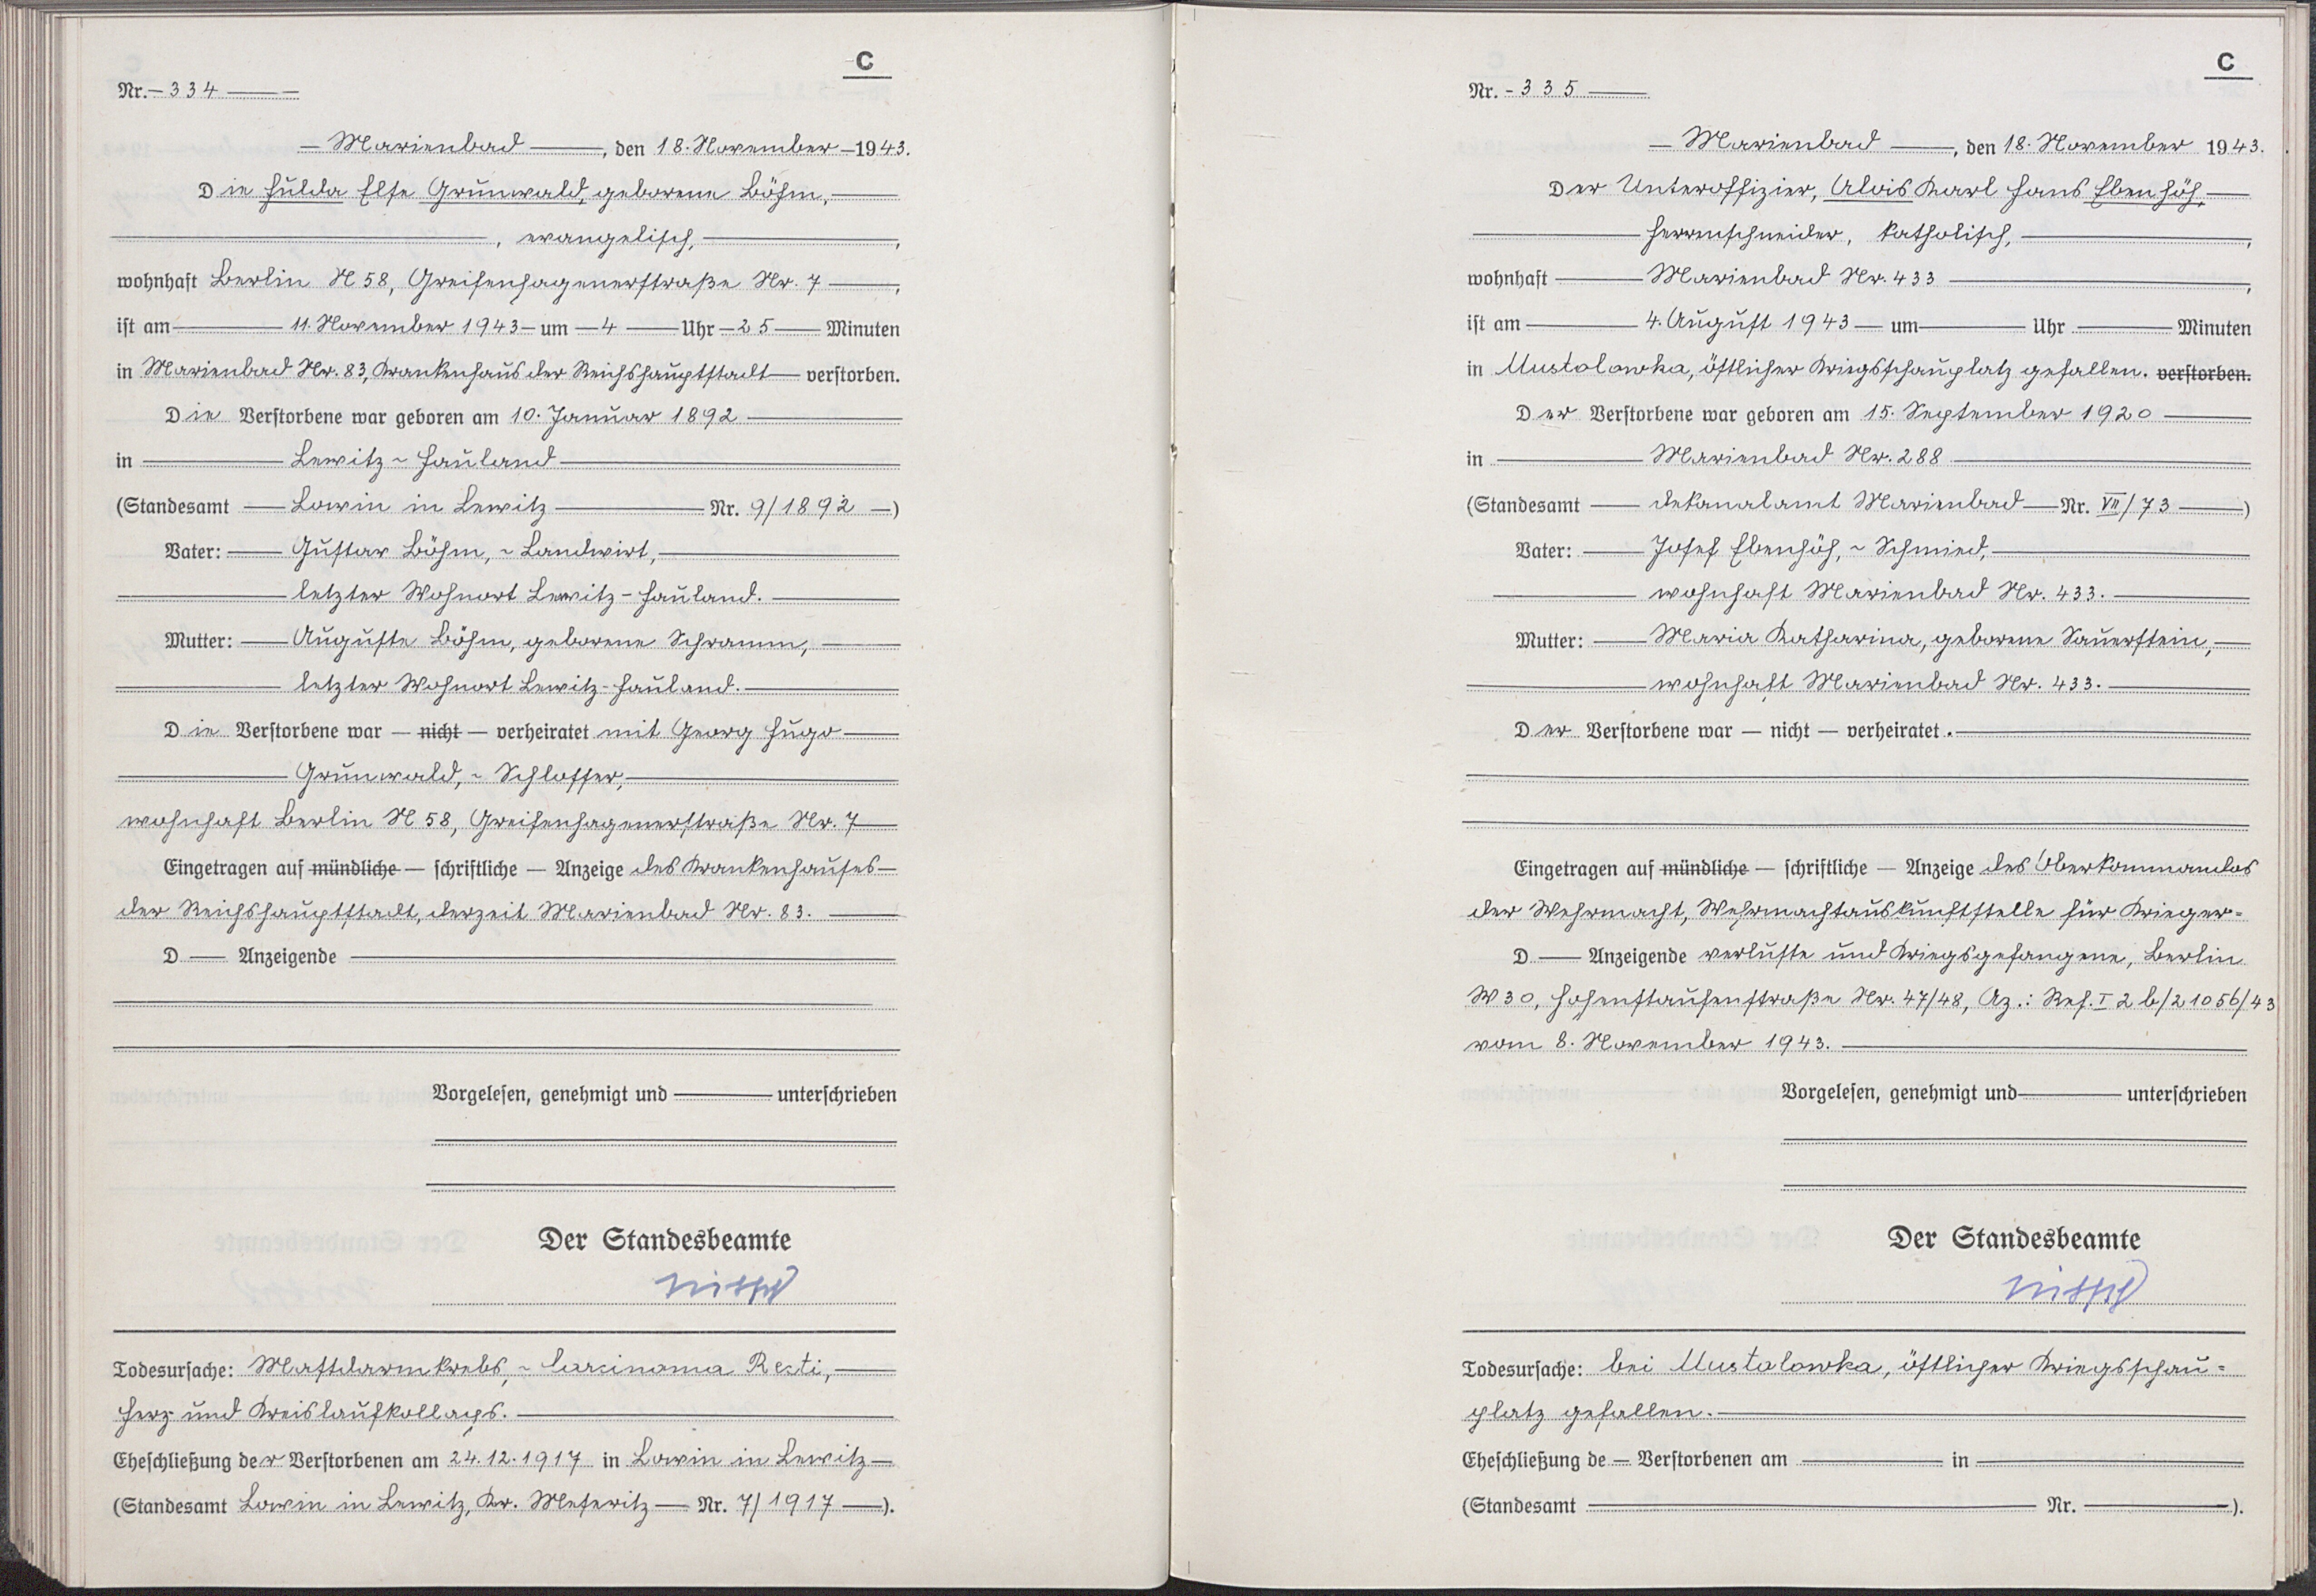 C
Nr. - 334 -
- Marienbad -, den 18. November - 1943.
Die Hulda Else Grünwald, geborene Böhm, -
-, evangelisch, -,
wohnhaft Berlin N 58, Greifenhagenerstraße Nr. 7 -,
ist am - 11. November 1943 - um - 4 - Uhr - 25 - Minuten
in Marienbad Nr. 83, Krankenhaus der Reichshauptstadt - verstorben.
Die Verstorbene war geboren am 10. Januar 1892 -
in - Lewitz - Hauland -
(Standesamt - Lowin in Lewitz - Nr. 9/1892 -)
Vater: - Gustav Böhm, - Landwirt, -
- letzter Wohnort Lewitz-Hauland. -
Mutter: - Auguste Böhm, geborene Schramm, -
- letzter Wohnort Lewitz-Hauland. -
Die Verstorbene war — nicht — verheiratet mit Georg Hugo -
- Grünwald, - Schlosser, -
wohnhaft Berlin N 58, Greifenhagenerstraße Nr. 7 -
Eingetragen auf mündliche — schriftliche — Anzeige des Krankenhauses -
der Reichshauptstadt, derzeit Marienbad Nr. 83. -
D - Anzeigende -
Vorgelesen, genehmigt und - unterschrieben
Der Standesbeamte
Todesursache: Mastdarmkrebs, - Carcinoma Recti, -
Herz- und Kreislaufkollaps. -
Eheschließung der Verstorbenen am 24.12.1917 in Lowin in Lewitz -
(Standesamt Lowin in Lewitz, Kr. Meseritz - Nr. 7/1917 -).
C
Nr. - 335 -
- Marienbad -, den 18. November 1943.
Der Unteroffizier, Alois Karl Hans Ebenhöh, -
- Herrenschneider, katholisch, -,
wohnhaft - Marienbad Nr. 433 -,
ist am - 4. August 1943 - um - Uhr - Minuten
in Mustolowka, östlicher Kriegsschauplatz gefallen. verstorben.
Der Verstorbene war geboren am 15. September 1920 -
in - Marienbad Nr. 288 -
(Standesamt - Dekanalamt Marienbad - Nr. VII/73 -)
Vater: - Josef Ebenhöh, - Schmied, -
- wohnhaft Marienbad Nr. 433. -
Mutter: - Maria Katharina, geborene Sauerstein, -
- wohnhaft Marienbad Nr. 433. -
Der Verstorbene war — nicht — verheiratet. -
Eingetragen auf mündliche — schriftliche — Anzeige des Oberkommandos
der Wehrmacht, Wehrmachtauskunftstelle für Krieger=
D - Anzeigende verluste und Kriegsgefangene, Berlin
W 30, Hohenstaufenstraße Nr. 47/48, Az.: Ref. I 2 b/21056/43
vom 8. November 1943. -
Vorgelesen, genehmigt und - unterschrieben
Der Standesbeamte
Todesursache: bei Mustolowka, östlicher Kriegsschau=
platz gefallen. -
Eheschließung de - Verstorbenen am - in -
(Standesamt - Nr. -).